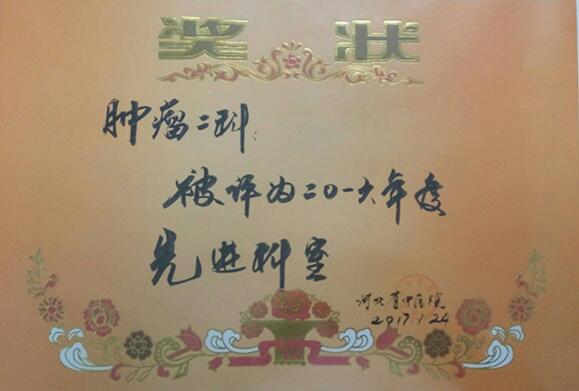 奖状
肿瘤二科:
被评为二〇一六年度
先进科室
河北省中医院
2017.1.24